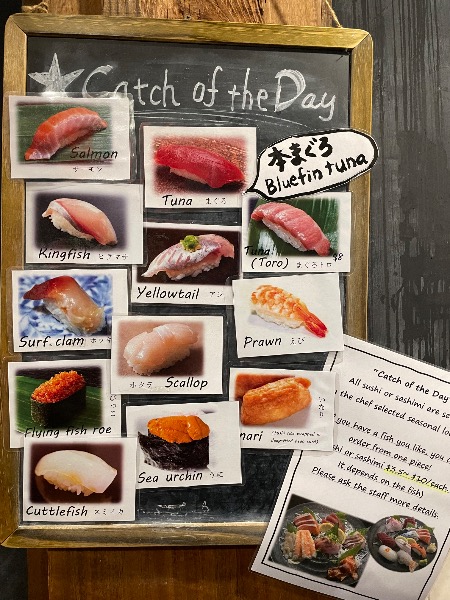 Catch of the Day
Salmon
サーモン
Tuna まぐろ
本まぐろ
Bluefin tuna
Kingfish ヒラマサ
Yellowtail アジ
Tuna
(Toro) まぐろトロ
Surf clam ホッキ
Prawn えび
ホタテ Scallop
Flying fish roe
nari
いなり
Sea urchin うに
Cuttlefish
"Catch of the Day
All sushi or sashimi are se
the chef selected seasonal lo
you have a fish you like, you
order from one piece!
hi or sashimi $3.5~$10/each
It depends on the fish)
Please ask the staff more details.